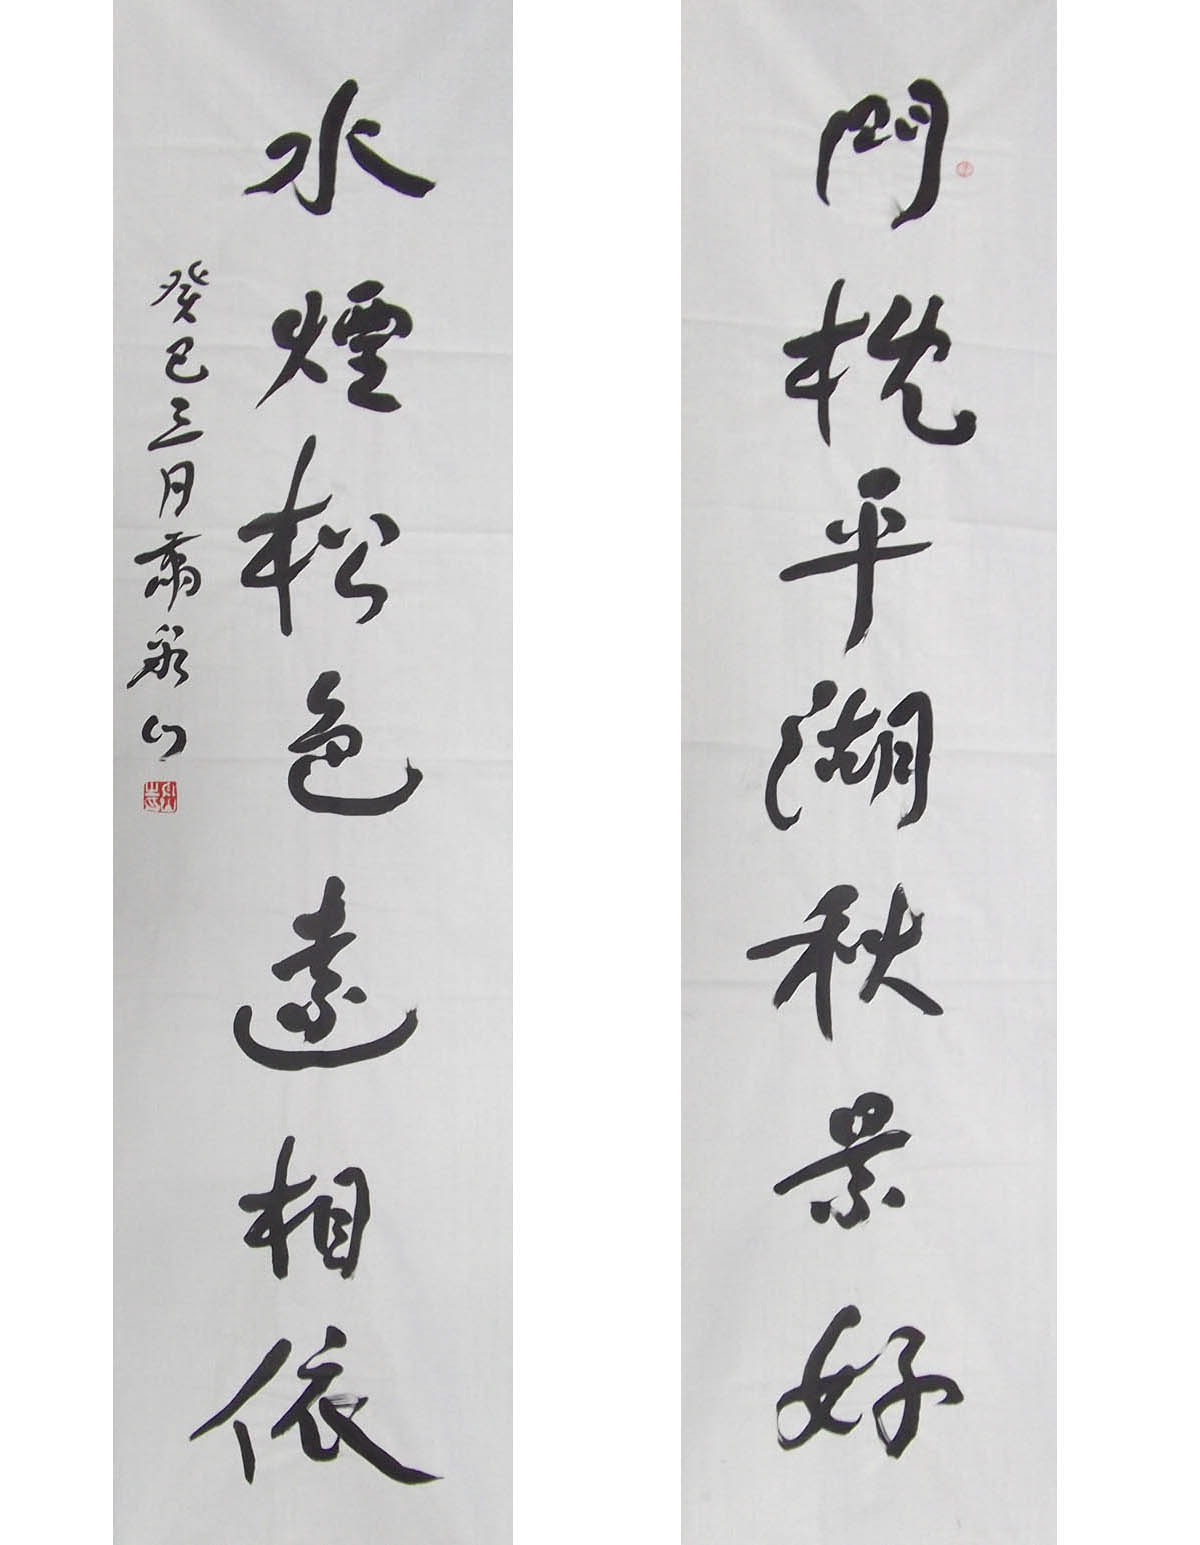 門枕平湖秋景好
水煙松色遠相依
癸巳三月蕭泉山